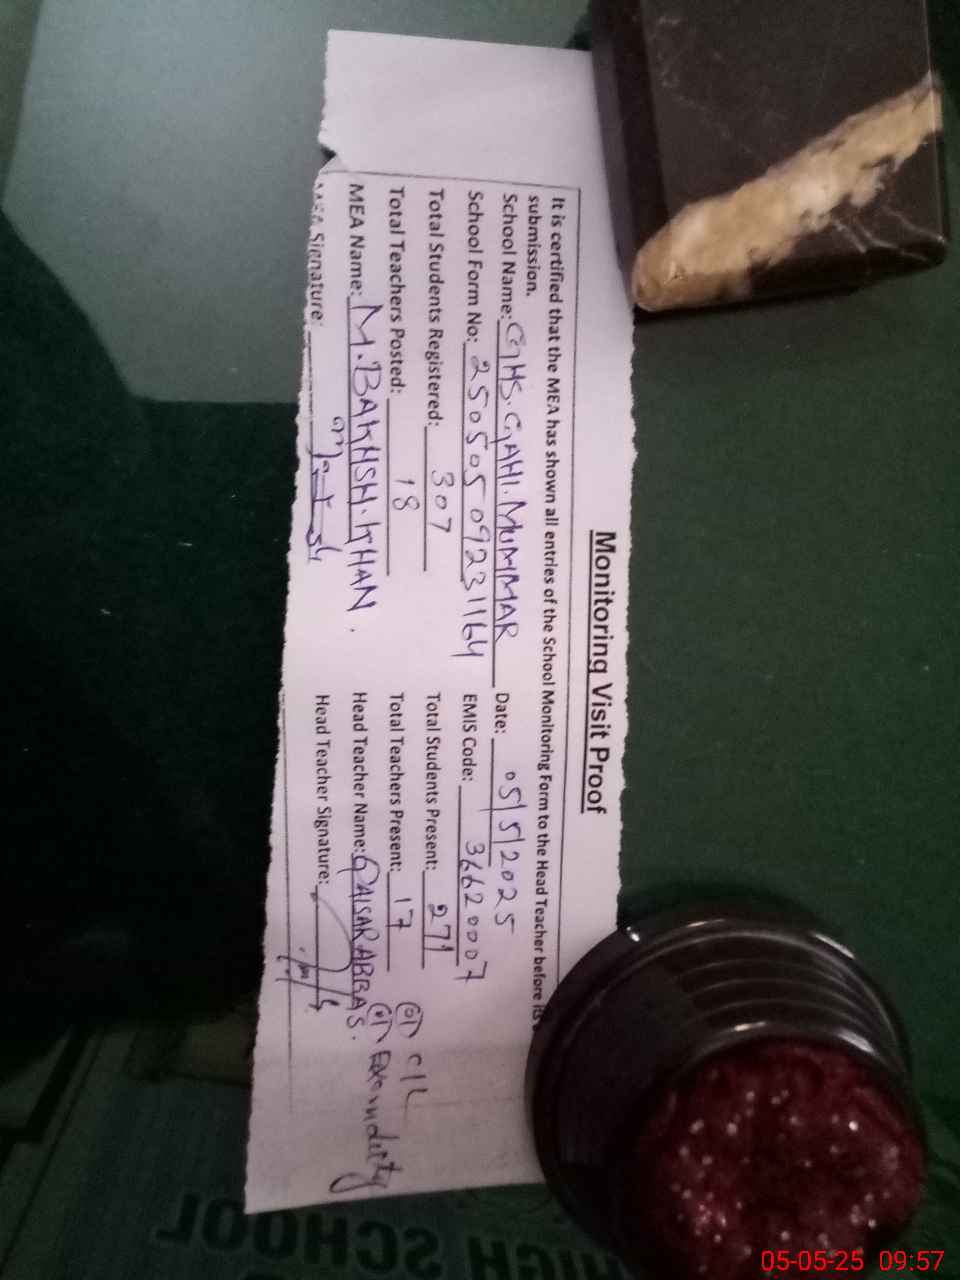 Monitoring Visit Proof
It is certified that the MEA has shown all entries of the School Monitoring Form to the Head Teacher before its
submission.
School Name: GHS. GAHI. MUMMAR Date: 05/5/2025
School Form No: 25050509231164 EMIS Code: 36620007
Total Students Registered: 307 Total Students Present: 271
Total Teachers Posted: 18 Total Teachers Present: 17 01 C/L
MEA Name: M. BAKHSH. KHAN. Head Teacher Name: QAISAR ABBAS. 01 Exam duty
MEA Signature: Head Teacher Signature:
HIGH SCHOOL
05-05-25 09:57